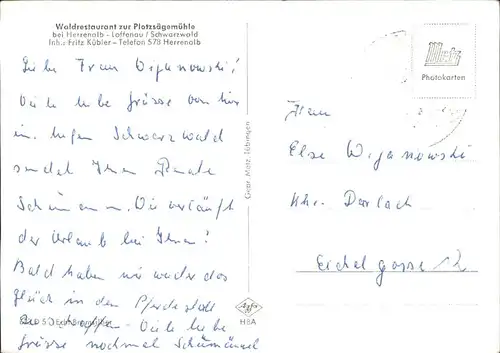 Waldrestaurant zur Plotzsägemühle
bei Herrenalb - Loffenau / Schwarzwald
Inh.: Fritz Kübler - Telefon 578 Herrenalb
Liebe Frau Wiganowski!
Viele liebe Grüsse von hier
im Schwarzwald
sendet Ihnen Renate
Schümann. Wie verläuft
der Urlaub bei Ihnen?
Bald haben wir wieder das
Glück in den Pferdestall
Viele liebe
Grüsse nochmal
Gebr. Metz, Tübingen
Agfa
HBA
Metz
Photokarten
Frau
Else Wiganowski
Khe. Durlach